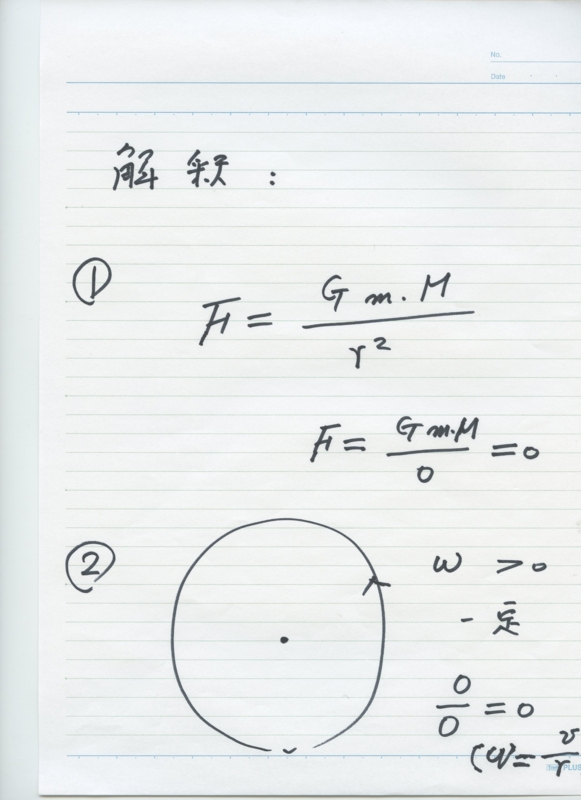 No.
Date
解釈:
① F = G m. M / r²
F = G m.M / 0 = 0
② ω > 0
一定
0/0 = 0
(ω = v/r
PLUS